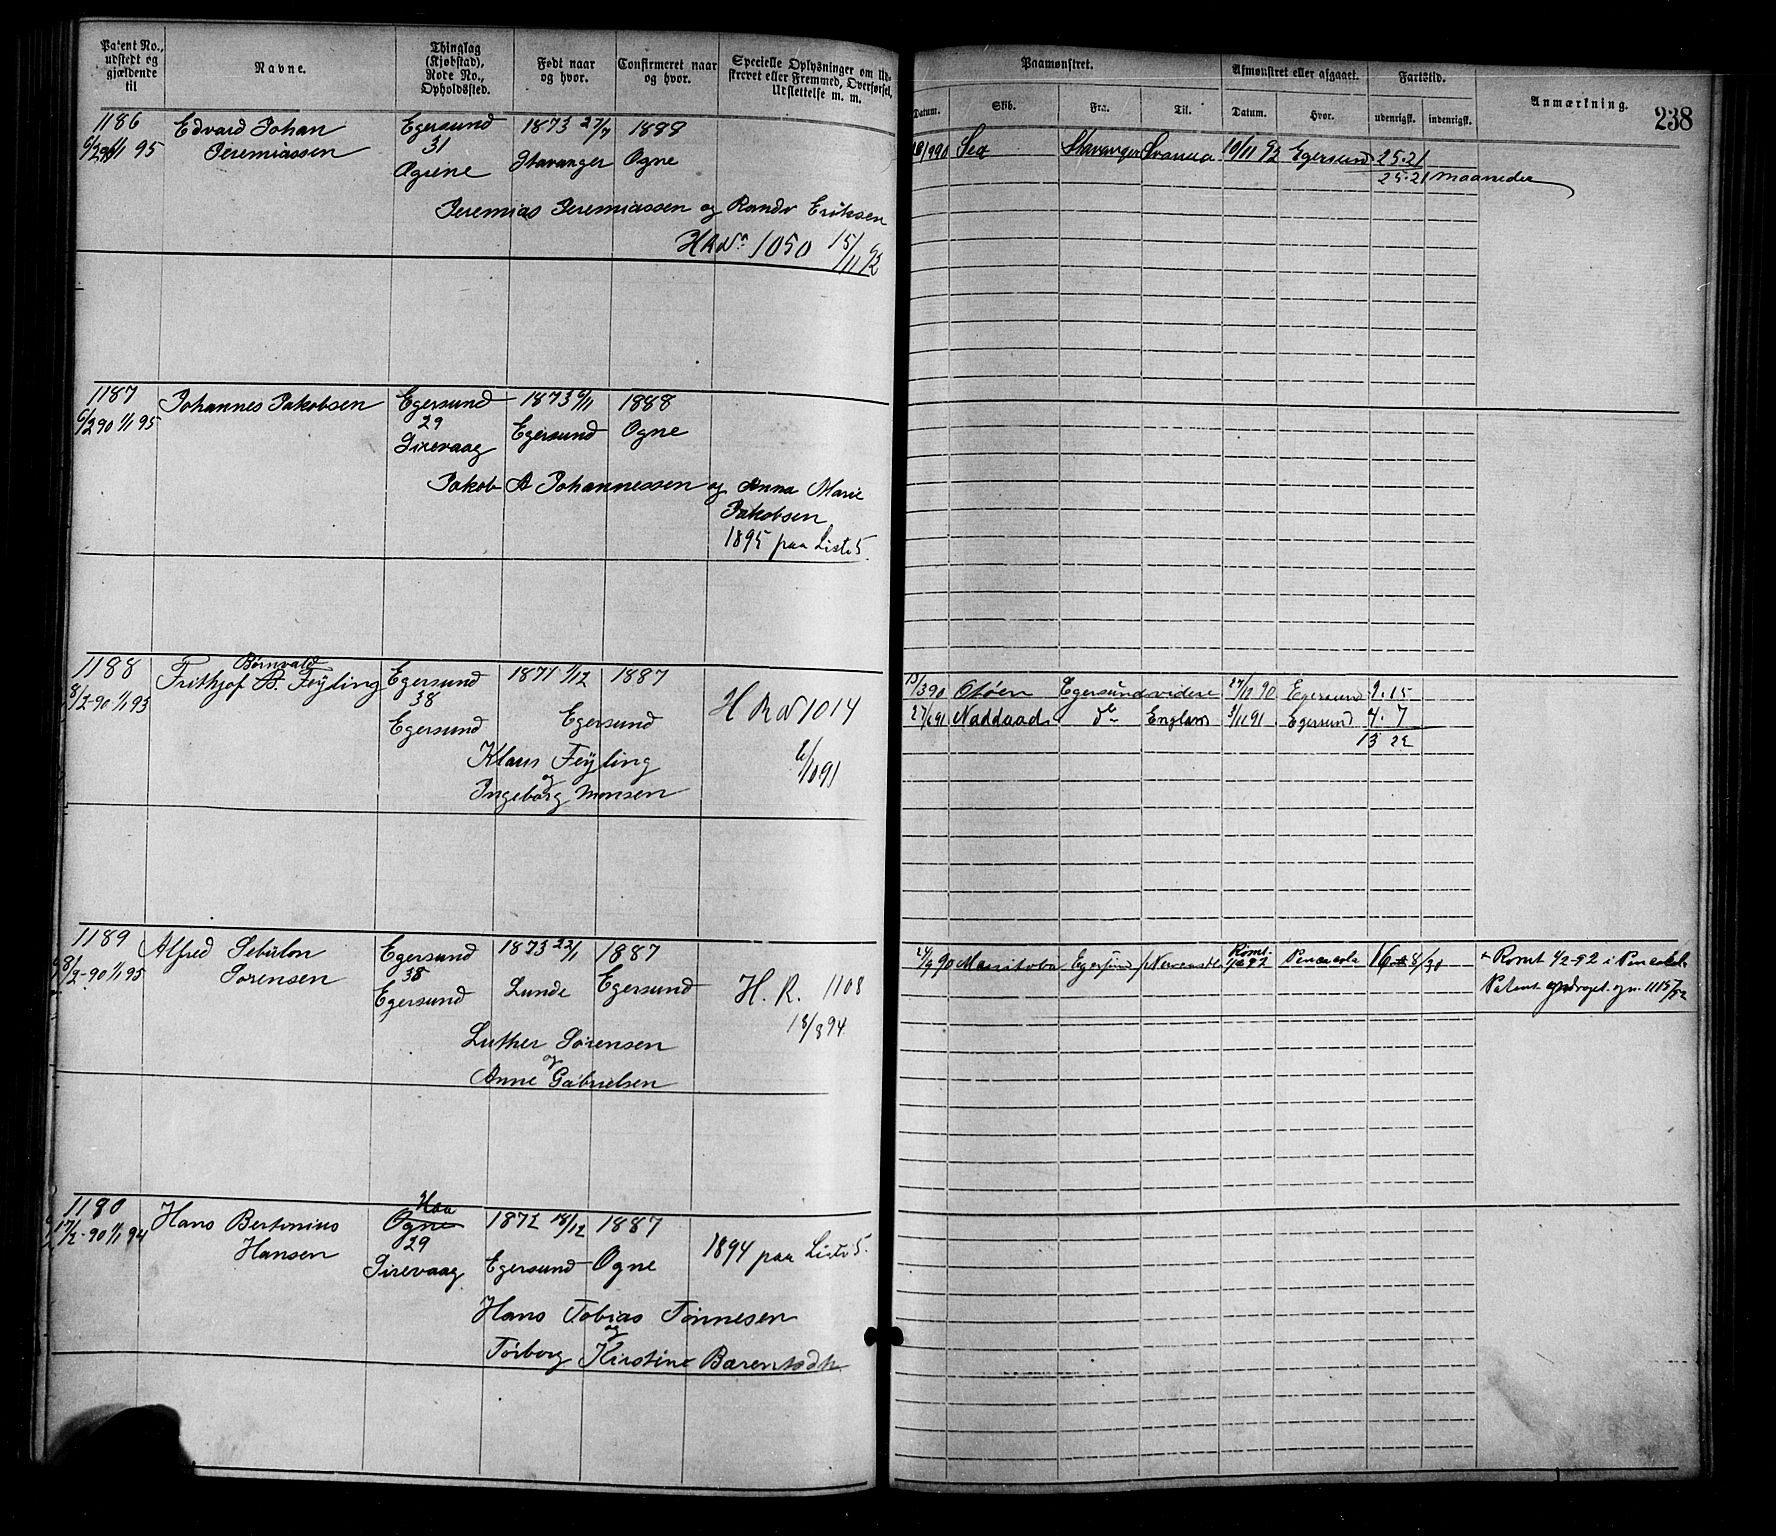 Patent No., udstedt og gjældende til
Navne.
Thinglag (Kjøbstad), Rode No., Opholdssted.
Født naar og hvor.
Confirmeret naar og hvor.
Specielle Oplysninger om Udskrevet eller Fremmed, Overførsel, Udslettelse m. m.
Paamønstret.
Afmønstret eller afgaaet.
Fartstid.
Anmærkning.
238
Datum.
Skib.
Fra.
Til.
Datum.
Hvor.
udenrigsk.
indenrigsk.
1186 Edvard Johan Egersund 1873 27/7 1888
95 Jeremiassen 31 Stavanger Ogne
Ogne
Jeremias Jeremiassen og Randi Eriksen
HRNo 1050 15/11 92
Sex Stavanger 10/11 92 Egersund 25.21
25.21 maaneder
1187 Johannes Jakobsen Egersund 1873 6/11 1888
6/2 90 1/1 95 29 Egersund Ogne
Sirevaag
Jakob A Johannessen og Anna Marie
Jakobsen
1895 paa Liste 5.
1188 Børnvald
Frithjof B. Feyling Egersund 1871 1/12 1887
8/2-90 1/1 93 38
Egersund Egersund HRN 1014
Klaus Feyling
og
Ingeborg Monsen
13/3 90 Otøen Egersund videre 27/12 90 Egersund 9.15
27/6 91 Naddaad do England 3/11 91 Egersund 4.7
13 22
1189 Alfred Sebulon Egersund 1873 22/1 1887
8/2-90 1/1 95 Sørensen 38
Egersund Lunde Egersund H. R. 1108
18/8 94
Luther Sørensen
og
Anne Gabrielsen
Manitoba Egersund Newcastle Rømt Pensacola
Rømt 4/2-92 i Pensacola
Patent
1190 Hans Bertinius Haa
Ogne 1872 18/12 1887
17/2-90 1/1 94 Hansen 29
Sirevaag Egersund Ogne 1894 paa Liste 5.
Hans Tobias Tønnesen
og
Torborg Kirstine Barentsdtr